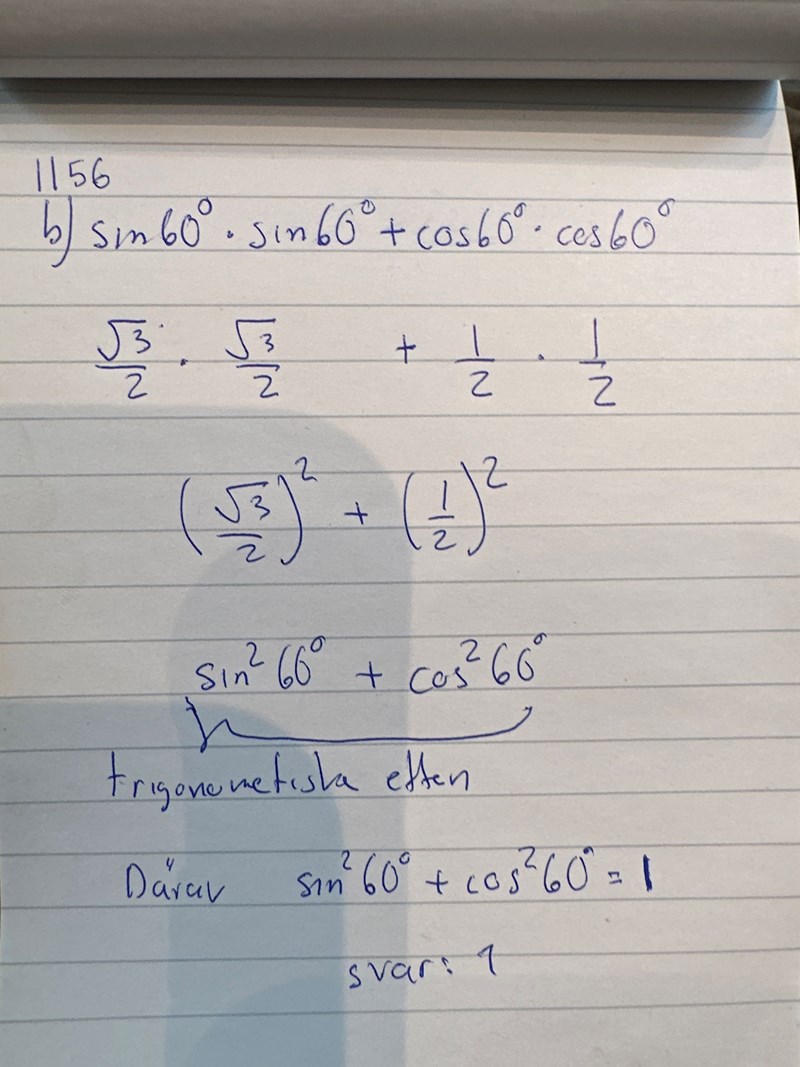 1156
b) sin60° · sin60° + cos60° · cos60°
√3/2 · √3/2 + 1/2 · 1/2
(√3/2)² + (1/2)²
sin² 60° + cos² 60°
trigonometiska etten
Därav sin² 60° + cos² 60° = 1
svar: 1